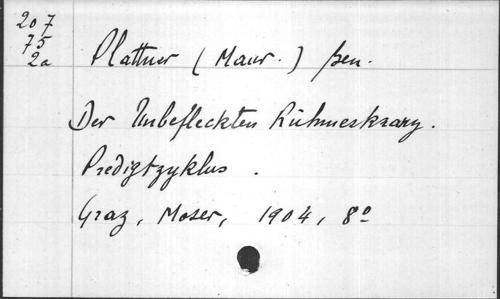 207
75
2a
Plattner (Maur.) sen.
Der Unbefleckten Ruhmeskranz.
Predigtzyklus.
Graz, Moser, 1904, 8º